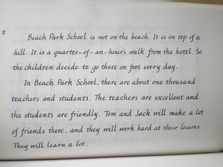 Beach Park School is not on the beach. It is on top of a
hill. It is a quarter-of-an-hour's walk from the hotel. So
the children decide to go there on foot every day.
In Beach Park School, there are about one thousand
teachers and students. The teachers are excellent and
the students are friendly. Tom and Jack will make a lot
of friends there, and they will work hard at their lessons.
They will learn a lot.